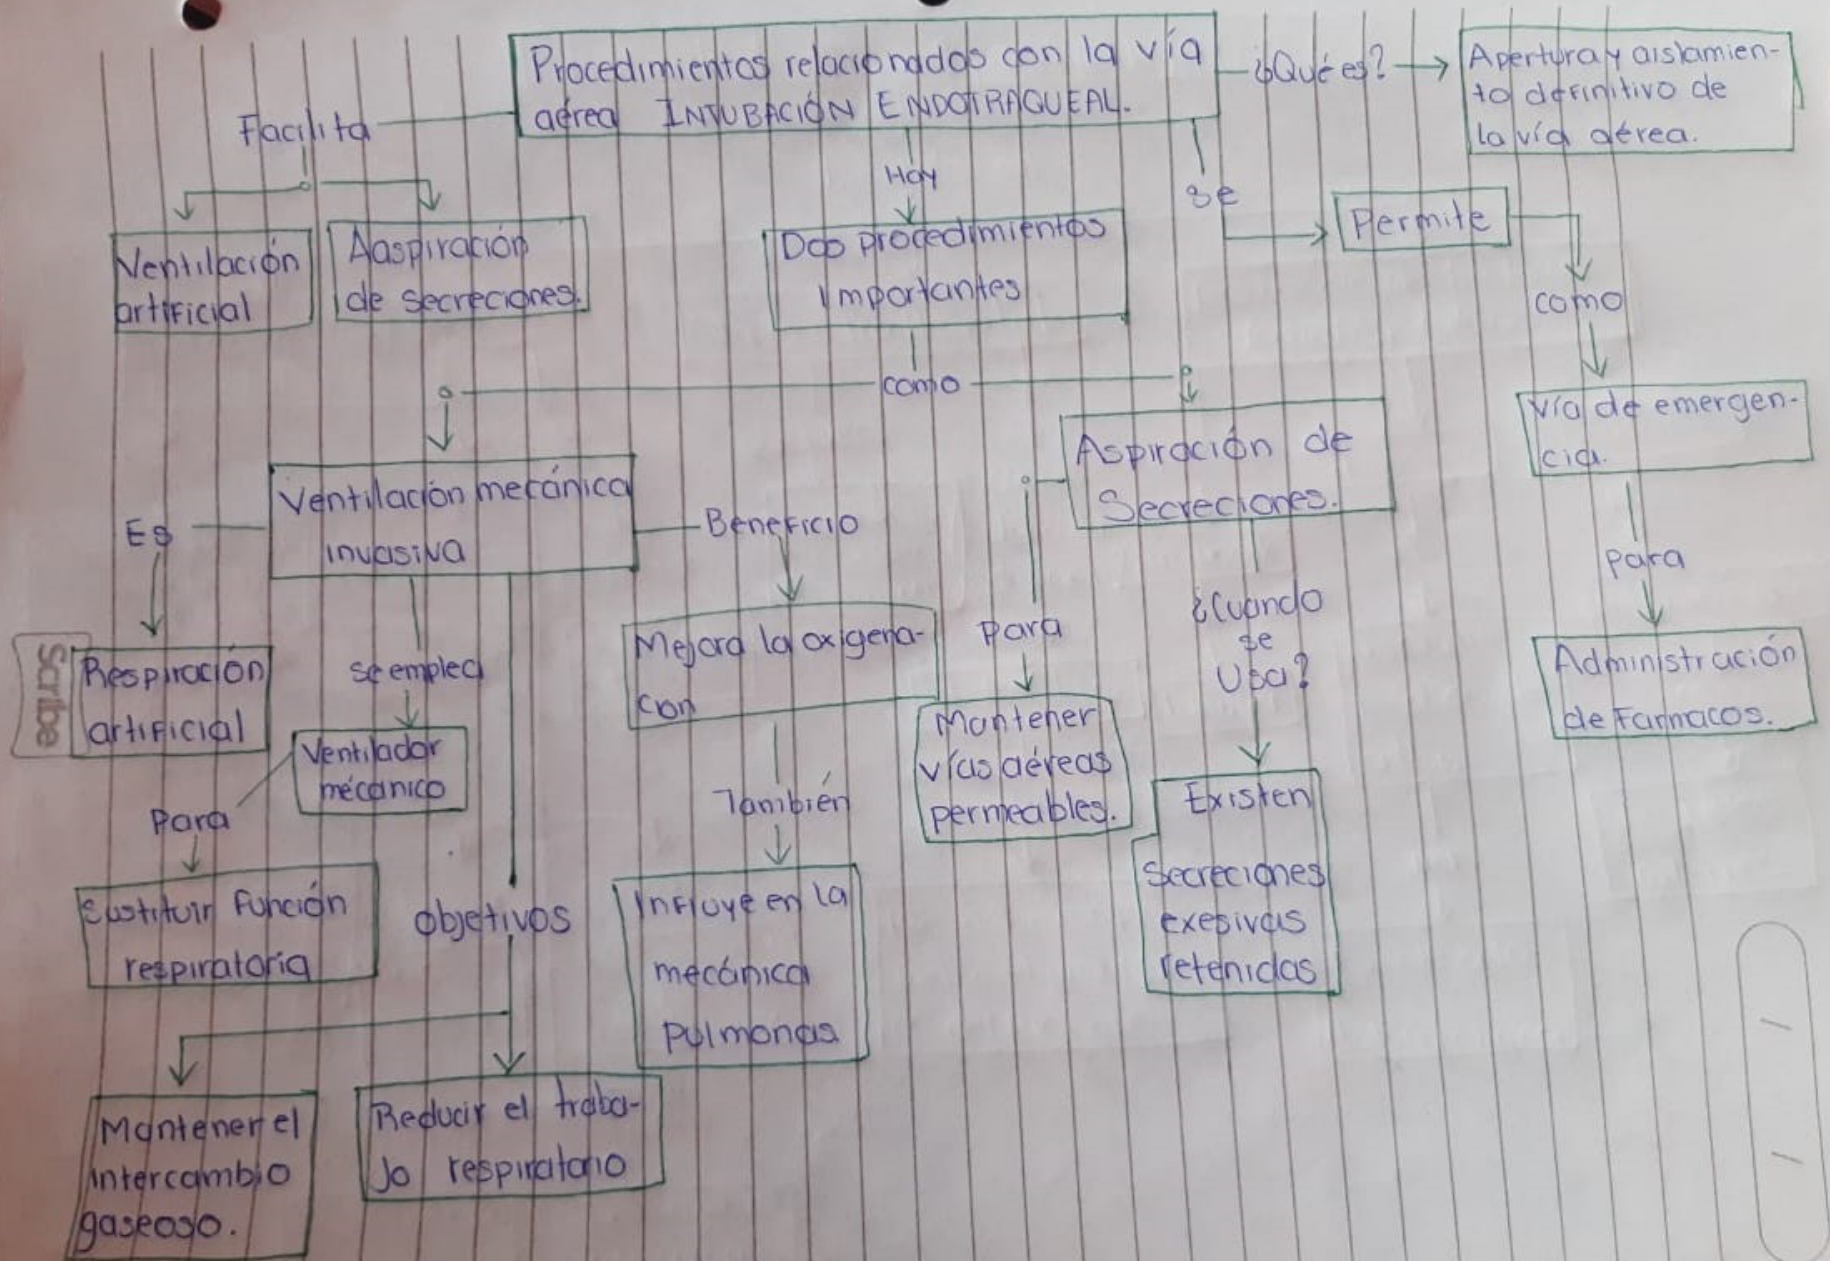 Procedimientos relacionados con la vía
aérea INTUBACIÓN ENDOTRAQUEAL.
¿Qué es?
Apertura y aislamien-
to definitivo de
la vía aérea.
Facilita
Ventilación
artificial
Aaspiración
de secreciones.
Hay
Dos procedimientos
Importantes
se
Permite
como
vía de emergen-
cia.
para
Administración
de Farmacos.
como
Ventilación mecánica
invasiva
Aspiración de
Secreciones.
Es
Respiración
artificial
se emplea
Ventilador
mécanico
Para
Sustituir función
respiratoria
objetivos
Mantener el
intercambio
gaseoso.
Reducir el traba-
Jo respiratorio
Beneficio
Mejora la oxigena-
cion
También
Influye en la
mecánica
pulmonas
para
Mantener
vías aéreas
permeables.
¿Cuando
se
Usa?
Existen
secreciones
exesivas
retenidas
Scribe